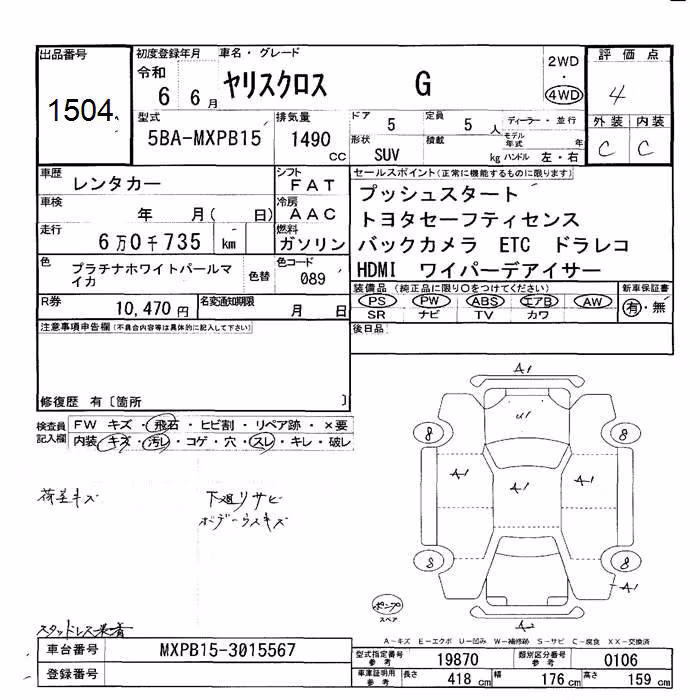 出品番号
1504
初度登録年月
令和
6 6月
車名・グレード
ヤリスクロス G
2WD
・
4WD
評価点
4
外装 内装
C C
型式
5BA-MXPB15
排気量
1490
cc
ドア
5
定員
5 人
ディーラー・並行
モデル年式 年
形状
SUV
積載
kg
ハンドル 左・右
車歴
レンタカー
シフト
FAT
車検
年 月( 日)
冷房
AAC
走行
6万0千735 km
燃料
ガソリン
色
プラチナホワイトパールマイカ
色替
色コード
089
R券
10,470円
名変通知期限
月 日
セールスポイント(正常に機能するものに限ります)
プッシュスタート
トヨタセーフティセンス
バックカメラ ETC ドラレコ
HDMI ワイパーデアイサー
装備品 (純正品に限り○をつけてください)
PS PW ABS エアB AW
SR ナビ TV カワ
新車保証書
有・無
後日品
注意事項申告欄(不具合内容等は具体的に記入して下さい)
修復歴 有〔箇所 〕
検査員記入欄
FW キズ・飛石・ヒビ割・リペア跡・×要
内装 キズ・汚レ・コゲ・穴・スレ・キレ・破レ
荷室キズ
下廻りサビ
ボデーウスキズ
スタッドレス装着
A1
U1
8 8
A1 A1 A1
8 8
A1
A2
ポンプ
スペア
A－キズ E－エクボ U－凹み W－補修跡 S－サビ C－腐食 XX－交換済
車台番号
MXPB15-3015567
登録番号
型式指定番号
参考
19870
類別区分番号
参考
0106
車庫証明用
参考
長さ 418 cm
幅 176 cm
高さ 159 cm